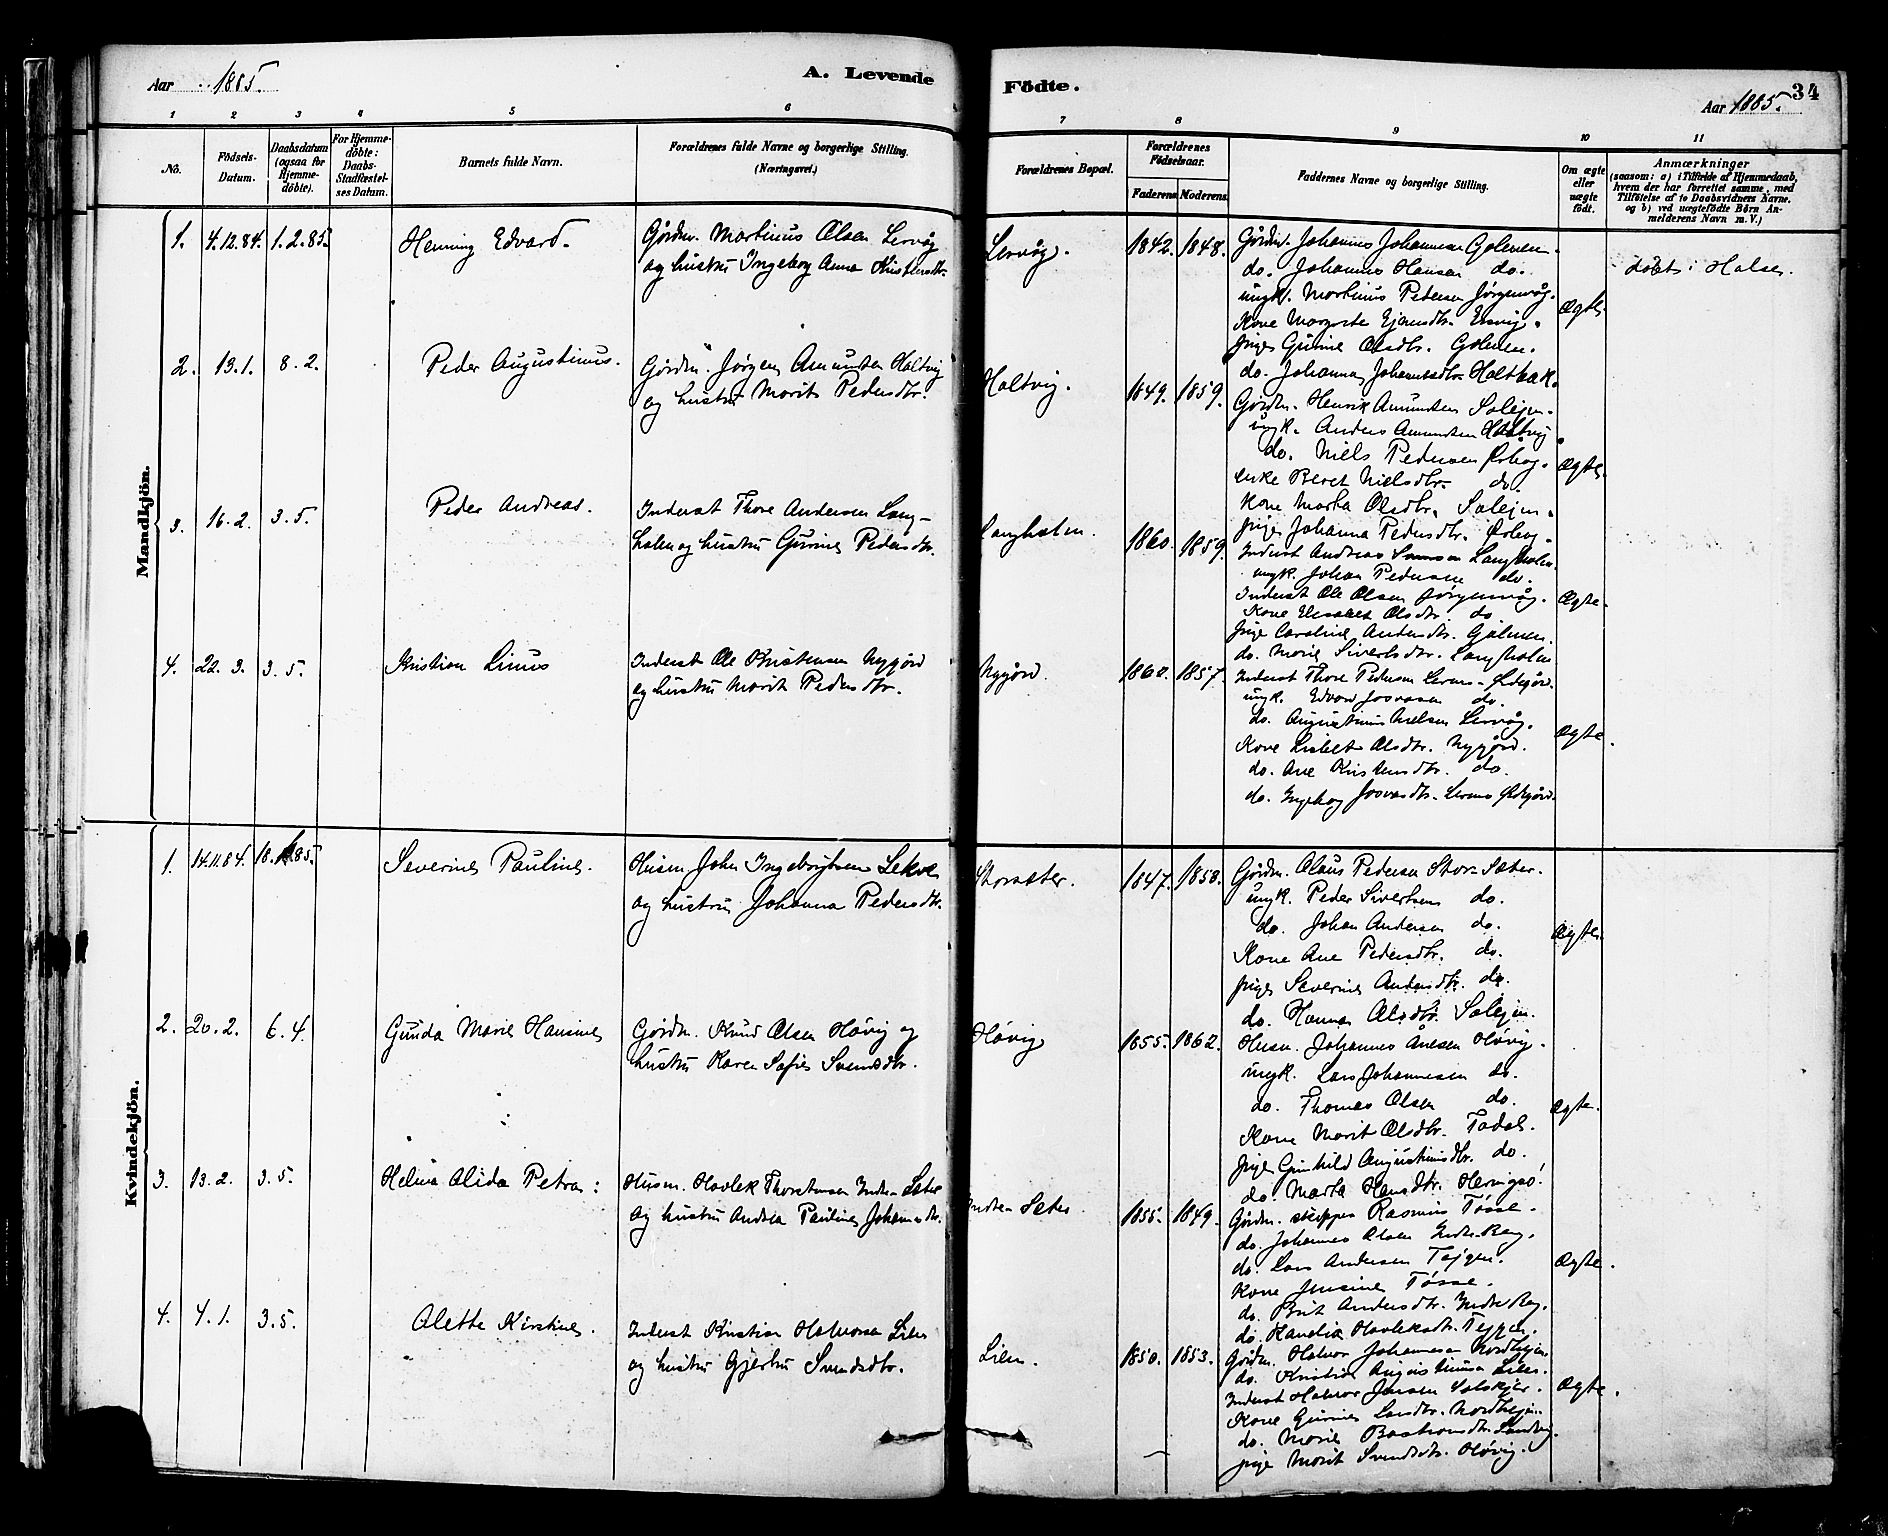 Aar 1885.
A. Levende
Födte.
Aar 1885.
34
1 2 3 4 5 6 7 8 9 10 11
No.
Födsels-Datum.
Daabsdatum (ogsaa for Hjemme-döbte).
For Hjemme-döbte: Daabs-Stadfæstel-ses Datum.
Barnets fulde Navn.
Forældrenes fulde Navne og borgerlige Stilling.
(Næringsvei.)
Forældrenes Bopæl.
Forældrenes Födselsaar.
Faderens.
Moderens.
Faddernes Navne og borgerlige Stilling.
Om ægte eller uægte födt.
Anmærkninger
(saasom: a) i Tilfælde af Hjemmedaab, hvem der har forrettet samme, med Tilföielse af to Daabsvidners Navne. og b) ved uægtefödte Börn An-melderens Navn m. V.)
Mandkjön.
1. 4.12.84. 1.2.85. Henning Edvard.
Gårdm. Martinus Olsen Lervåg
og hustru Ingeborg Anna Kristensdtr.
Lervåg. 1842. 1848.
Gårdm. Johannes Johannesen Golmen.
do. Johannes Hansen do.
ungk. Martinus Pedersen Jørgenvåg.
Kone Margrete Ejensdtr.
Pige Gurine Olsdtr. Golmen.
do. Johanna Johannesdtr. Holtbak.
Ægte.
døbt i Halse.
2. 13.1. 8.2. Peder Augustinus.
Gårdm. Jørgen Amundsen Holtvig
og hustru Marit Pedersdtr.
Holtvig. 1849. 1859.
Gårdm. Henrik Amundsen Solejen.
ungk. Anders Amundsen Holtvig
do. Niels Pedersen
enke Beret Nielsdtr. do.
Kone Marta Olsdtr. Solejen.
Pige Johanna Pedersdtr.
Ægte.
3. 16.2. 3.5. Peder Andreas.
Inderst Thore Andersen Lang-
holm og hustru Gurine Pedersdtr.
Langholm. 1860. 1859.
Inderst Andreas Langholm.
ungk. Johan Pedersen do.
Inderst Ole Olsen Jørgenvåg.
Kone Elisabet Olsdtr. do
Pige Caroline Andersdtr. Golmen.
do. Marie Sivertsdtr. Langholm
Ægte.
4. 22.3. 3.5. Kristian Linus
Inderst Ole Kristensen Nygård
og hustru Marit Pedersdtr.
Nygård. 1860. 1857.
Inderst Thore Pedersen
ungk. Edvard do.
do. Augustinus Nielsen Lervåg.
Kone Lisbet Olsdtr. Nygård.
do. Ane Kristensdtr. do.
do. Ingeborg
Ægte.
Kvindekjön.
1. 14.11.84. 18.1.85. Severine Pauline.
Husm. John Ingebrigtsen
og hustru Johanna Pedersdtr.
Storsæter. 1847. 1850.
Gårdm. Olaus Pedersen Stor-Sæter.
ungk. Peder Sivertsen do.
do. Johan Andersen do.
Kone Ane Pedersdtr. do.
Pige Severine Andersdtr. do
do. Hanna Olsdtr. Solejen.
Ægte.
2. 20.2. 6.4. Gunda Marie Hansine
Gårdm. Knud Olsen Høvig og
hustru Karen Sofie Svendsdtr.
Høvig 1855. 1862.
Husm. Johannes Høvig.
ungk. Lars Johannesen do.
do. Thomas Olsen do.
Kone Marit Olsdtr.
Pige Gunhild Augustinusdtr. do.
do. Marta Hansdtr.
Ægte.
3. 13.2. 3.5. Helma Alida Petra:
Husm. Havlek Thorstensen Indre Sæter
og hustru Andrea Pauline
Indre Sæter. 1855. 1849.
Gårdm. skipper Rasmus Tøsse.
do. Johannes Olsen
do. Lars Andersen
Kone Jensine Tøsse.
do. Brit Andersdtr.
do. Havleksdtr.
Ægte.
4. 4.1. 3.5. Alette Kirstine.
Inderst Kristian Halvorsen Lien
og hustru Gjertru Svendsdtr.
Lien. 1850. 1853.
Gårdm. Halvor Johannesen
do. Kristian Augustinusen Lien.
Inderst Halvor Jensen
Kone Gurine Larsdtr.
do. Marie
Pige Marit Svendsdtr. Høvig.
Ægte.